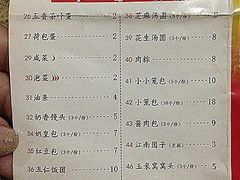 26 五香茶叶蛋 2
27 荷包蛋 2
29 咸菜 2
30 泡菜 2
31 油条 4
32 奶香馒头(3个/份) 4
34 奶皇包(3个/份) 7
35 红豆包(3个/份) 7
36 玉仁饭团 10
38 芝麻汤圆(3个/份) 8
39 花生汤圆(3个/份) 8
40 肉粽 8
41 小小笼包(3个/份) 9
42 小笼包 16
43 酱肉包(3个/份) 9
44 江南团子(芝麻) 3
46 玉米窝窝头(3个/份) 5